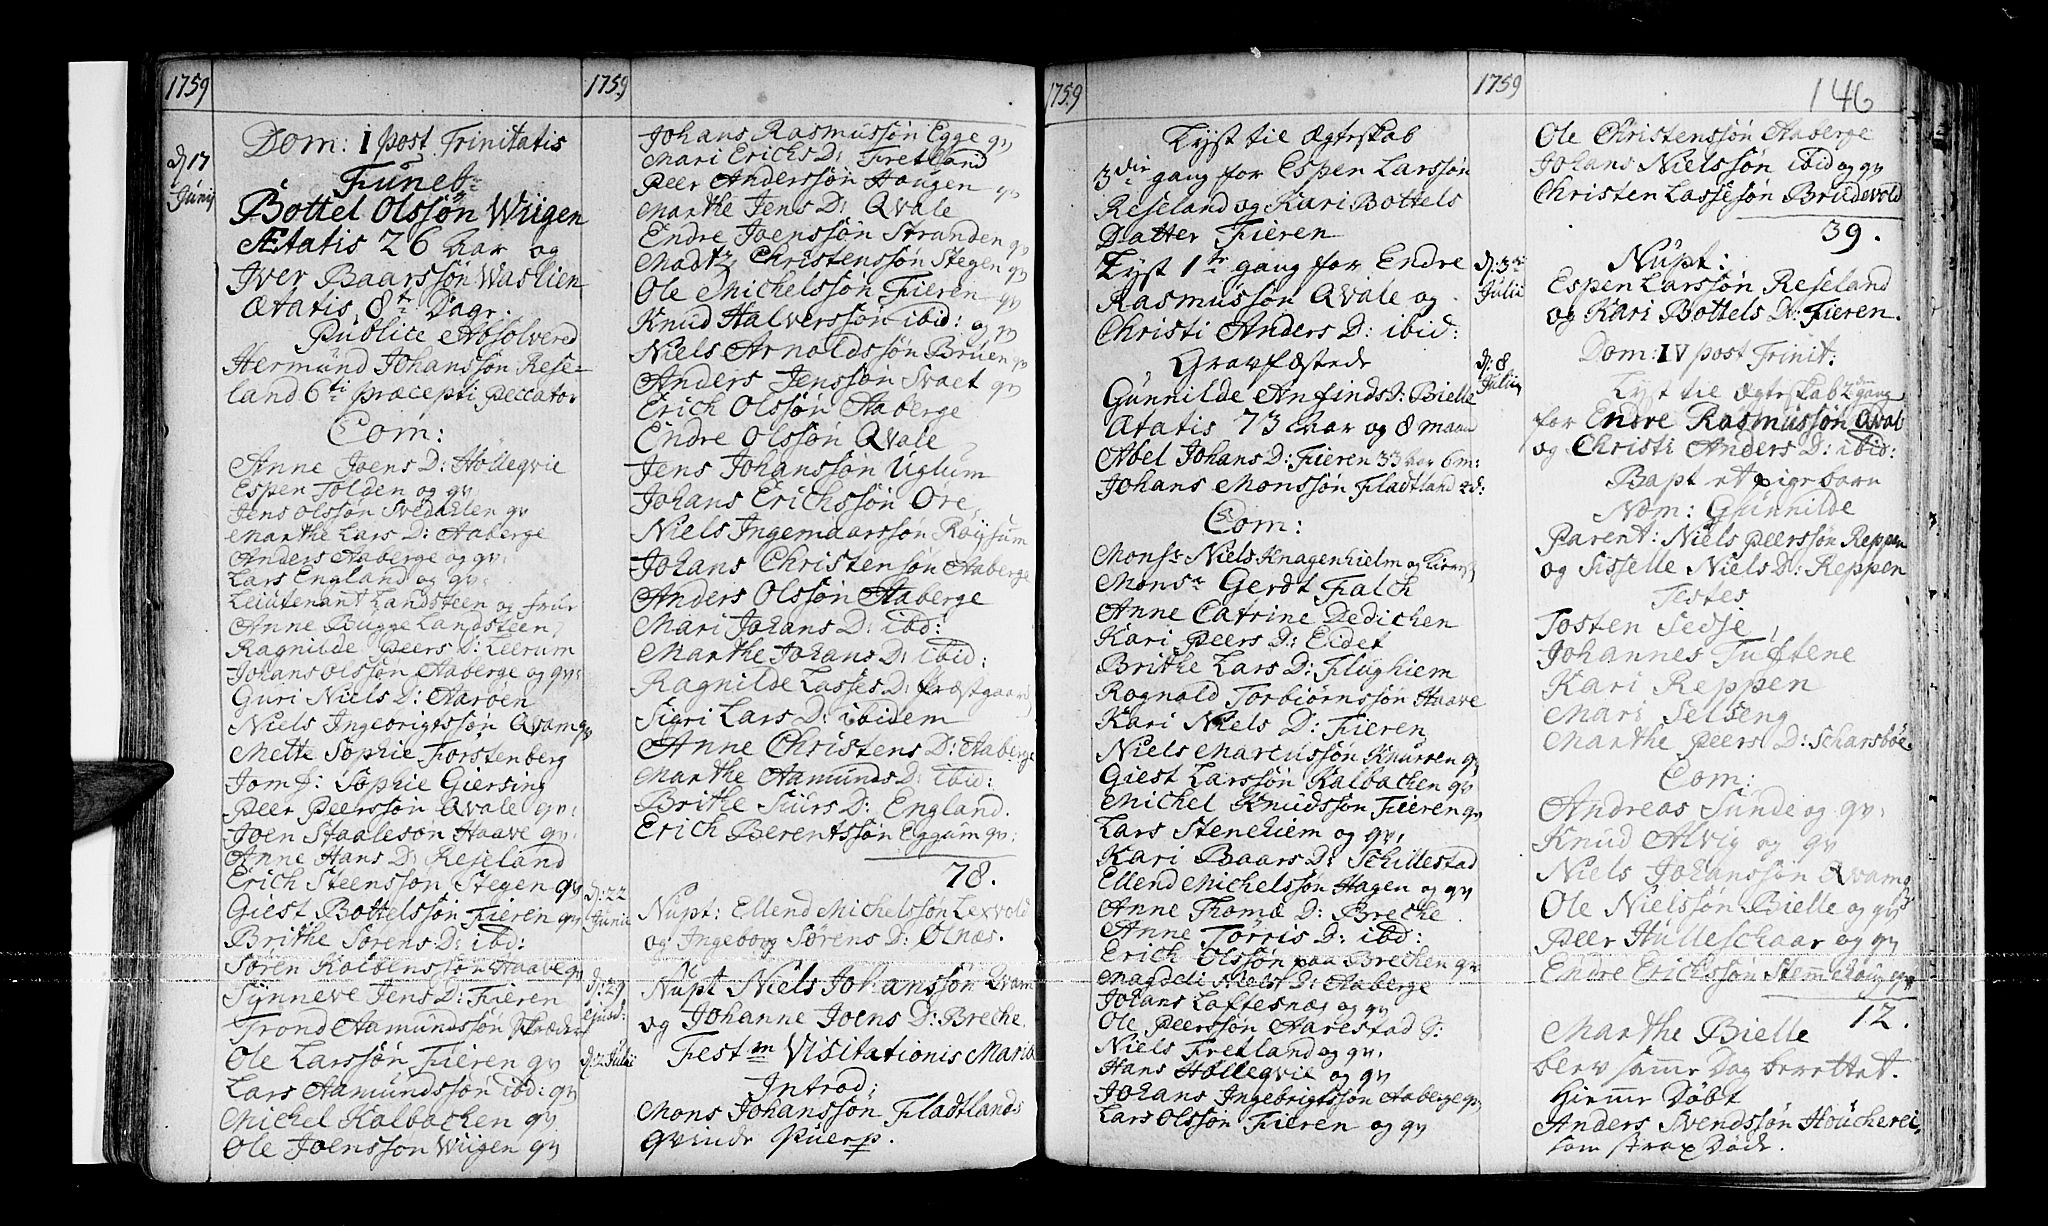 1759
Dom: I post Trinitatis
d. 17 Junij
Funeb
Bottel Olssøn Wiigen
Ætatis 26 aar og
Iver Baarssøn Waslien
ætatis 8te Dage.
Publice Absolvered
Hermund Johanssøn Rese-
land 6ti præcepti peccator
Com:
Anne Joens D: Hollegvie
Espen Tolden og qv
Jens Olssøn Svedahlen qv
Marthe Lars D: Aaberge
Anders Aaberge og qv:
Lars England og qv:
Leiutenant Landsteen og frue
Anne Bugge Landsteen
Ragnilde Peers D: Leerum
Johans Olssøn Aaberge og qv:
Guri Niels D: Aarøen
Niels Ingebrigtssøn Qvam qv
Mette Sophie Forstenberg
Jomf: Sophie Giersing
Peer Peerssøn Qvale qv:
Joen Staalesøn Haave qv:
Anne Hans D: Reseland
Erich Steenssøn Stegen qv
Giest Bottelssøn Fieren qv
Brithe Sørens D: ibd:
Søren Kolbenssøn Haave qv
Synneve Jens D: Fieren
Trond Aamundssøn Skræder
Ole Larssøn Fieren qv
Lars Aamundssøn ibd: qv
Michel Kalbachen qv
Ole Joenssøn Wiigen qv
1759
Johans Rasmussøn Egge qv
Mari Erichs D: Fretland
Peer Anderssøn Hougen qv
Marthe Jens D: Qvale
Endre Joenssøn Stranden qv
Madtz Christenssøn Stegen qv
Ole Michelssøn Fieren qv
Knud Halverssøn ibid: og qv
Niels Arnoldssøn Bruen qv
Anders Jenssøn Svaet qv
Erich Olssøn Aaberge
Endre Olssøn Qvale
Jens Johanssøn Uglum
Johans Erichssøn Øre
Niels Ingemaarssøn Røysum
Johans Christensøn Aaberge
Anders Olssøn Aaberge
Mari Johans D: ibd:
Marthe Johans D: ibid:
Ragnilde Lasses D: Præstgaard
Sigri Lars D: ibidem
Anne Christens D: Aaberge
Marthe Aamunds D: ibid:
Brithe Siurs D: England.
Erich Berentssøn Eggum qv:
78.
d. 22 Junii
Nupt: Ellend Michelssøn Lexvold
og Ingeborg Sørens D: Ølnæs.
d. 29 ejusd:
Nupt Niels Johanssøn Qvam
og Johanne Joens D: Breche.
d. 2 Julii
Festm Visitationis Mariæ
Introd:
Mons Johanssøn Fladtlands
qvinde Puerp.
1759
Lyst til Ægteskab
3die gang for Espen Larssøn
Reseland og Kari Bottels
Datter Fieren
Lyst 1ste gang for Endre
Rasmussøn Qvale og
Christi Anders D: ibid:
Gravfæstede
Gunnilde Anfinds D: Bielle
Ætatis 73 aar og 8 maan
Abel Johans D: Fieren 33 aar 6 m:
Johans Monssøn Fladtland 2 d:
Com:
Monsr Niels Knagenhielm og
Monsr Gerdt Falch
Anne Catrine Dedichen
Kari Peers D: Eidet
Brithe Lars D: Flughiem
Rognald Torbiørnssøn Haave
Kari Niels D: Fieren
Niels Marcussøn Knurren qv
Giest Larssøn Kalbachen qv
Michel Knudssøn Fieren qv
Lars Stenehiem og qv:
Kari Baars D: Schillestad
Ellend Michelssøn Hagen og qv
Anne Thomæ D: Breche
Anne Torris D: ibd:
Erich Olssøn paa Brechen qv
Magdeli Niels D: Aaberge
Johans Loftesnæs og qv
Ole Peerssøn Aarestad S:
Niels Fretland og qv:
Hans Hollegvie og qv
Johans Ingebrigtssøn Aaberge qv
Lars Olssøn Fieren og qv
1759
146
Ole Christenssøn Aaberge
Johans Nielssøn ibid og qv
Christen Lassesøn Brudevold
39.
d. 3die Julii
Nupt:
Espen Larssøn Reseland
og Kari Bottels D: Fieren.
d. 8 Julii
Dom: IV post Trinit:
Lyst til Ægteskab 2den gang
for Endre Rasmussøn Qvale
og Christi Anders D: ibid:
Bapt et pige barn
Nom: Gunnilde
Parent: Niels Peerssøn Reppen
og Sisselle Niels D: Reppen
Testes
Tosten Sedje
Johannes Tuftene
Kari Reppen
Mari Selseng
Marthe Peers D: Scharsbøe
Com:
Andreas Sunde og qv:
Knud Alvig og qv
Niels Johanssøn Qvam qv
Ole Nielssøn Bielle og qv
Peer Hulleschaar og qv
Endre Erichssøn Stemehoug qv
12.
Marthe Bielle
blev samme Dag berettet.
Hiemme Døbt
Anders Svendssøn Houcherei
som strax Døde.